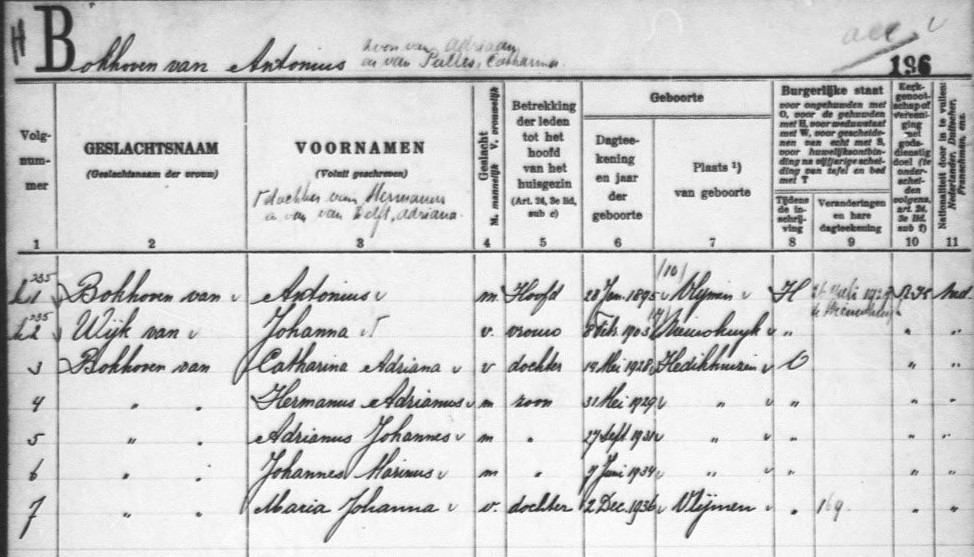 H Bokhoven van Antonius zoon van Adriaan
en van Pulles, Catharina.
acc v
196
Volg-
num-
mer
GESLACHTSNAAM
(Geslachtsnaam der vrouw)
VOORNAMEN
(Voluit geschreven)
Γ dochter van Hermanus
en van van Delft, Adriana.
Geslacht
M. mannelijk V. vrouwelijk
Betrekking
der leden
tot het
hoofd
van het
huisgezin
(Art. 24, 3e lid,
sub c)
Geboorte
Dagtee-
kening
en jaar
der
geboorte
Plaats ¹)
van geboorte
Burgerlijke staat
voor ongehuwden met
O, voor de gehuwden
met H, voor weduwstaat
met W, voor gescheide-
nen van echt met S,
voor huwelijksontbin-
ding na vijfjarige schei-
ding van tafel en bed
met T
Tijdens
de in-
schrij-
ving
Veranderingen
en hare
dagteekening
Kerk-
genoot-
schap of
vereeni-
ging
met
gods-
dienstig
doel (te
onder-
schei-
den
volgens
art. 24,
3e lid
sub f)
Nationaliteit door in te vullen:
Nederlander, Duitscher,
Franschman, enz.
1 2 3 4 5 6 7 8 9 10 11
235 1 Bokhoven van v Antonius v m Hoofd 28 Jan. 1895 v (10) Vlijmen v H Ned
235 2 Wijk van v Johanna v Γ v. vrouw Feb. 1903 v Nieuwkuyk v " " "
3 Bokhoven van Catharina Adriana v v dochter 19 Mei 1928 v Hedikhuizen v O " "
4 " " Hermanus Adrianus v m zoon 31 Mei 1929 v " v " " "
5 " " Adrianus Johannes v m " 27 Sept. 1931 v " v " " "
6 " " Johannes Marinus v m " 9 Juni 1934 v " v " " "
7 " " Maria Johanna v v. dochter 2 Dec. 1936 v Vlijmen v " 169 " "